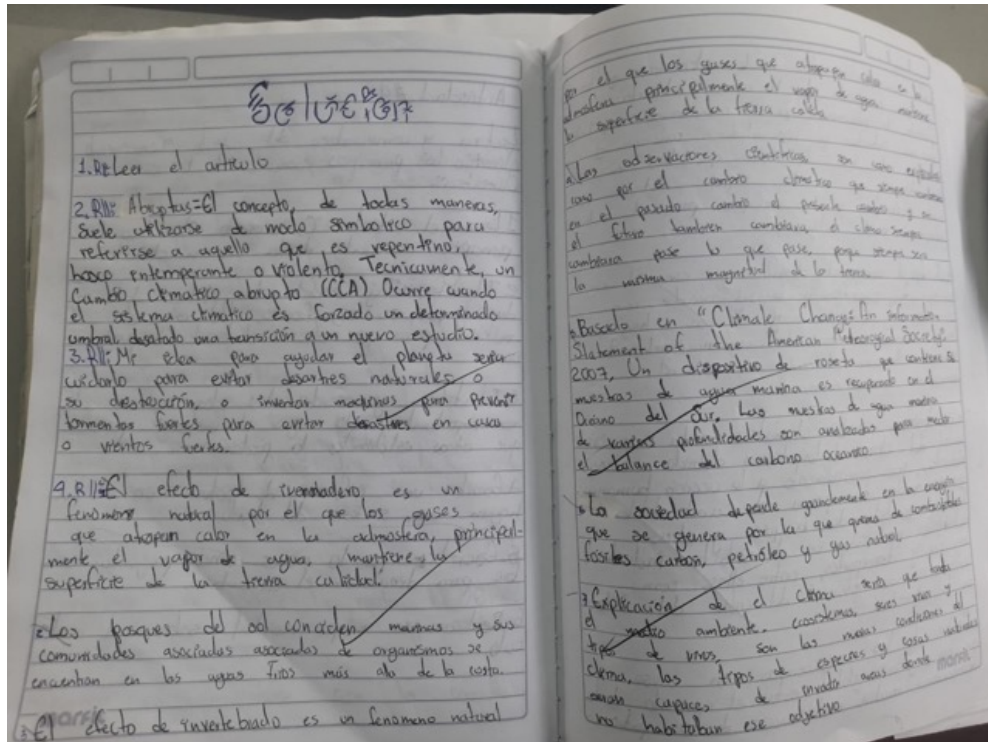 1.R: Leer el articulo
2. R//: Abruptas=El concepto, de todas maneras,
Suele utilizarse de modo simbolico para
referirse a aquello que es repentino,
hosco intemperante o violento. Tecnicamente, un
Cambio climatico abrupto (CCA) Ocurre cuando
el sistema climatico es forzado un determinado
umbral desatado una transición a un nuevo estudio.
3. R//: Mi idea para ayudar el planeta seria
cuidarlo para evitar desastres naturales o
su destrucción, o inventar machinas para prevenir
tormentas fuertes para evitar desastres en casas
o vientos fuertes.
4. R//: El efecto de es un
fenomeno natural por el que los gases
que atrapan calor en la admosfera, principal-
mente el vapor de agua, mantiene la
superficie de la tierra
2. Los bosques del conciden marinas y sus
comunidades asociadas asociadas de organismos se
encuentran en las aguas más alla de la costa.
3. El efecto de invertebrado es un fenomeno natural
marfil
por el que los gases que calor en la
principalmente el vapor de agua
la superficie de la tierra
Las observaciones cientificas son
como por el cambio climatico que siempre
en el pasado, cambio el presente y
el futuro tambien cambiara, el clima siempre
cambiara pase lo que pase, porque siempre sera
la misma de la tierra
Basado en "Climate Change: An Information
Statement of the American Society"
2007, Un dispositivo de roseta que contiene
muestras de agua marina es recuperado en el
del Sur. Las muestras de agua
de varias profundidades son analizadas para
el balance del carbono oceanico
La sociedad depende grandemente en la energía
que se genera por la que quema de combustibles
fosiles carbon, petróleo y gas natural.
7. Explicación de el clima seria que todo
el medio ambiente, ecosistemas, seres vivos y
tipos de son las nuevas condiciones del
clima, las tipos de especies y cosas
capaces de invadir areas donde
no habitaban ese adjetivo
marfil